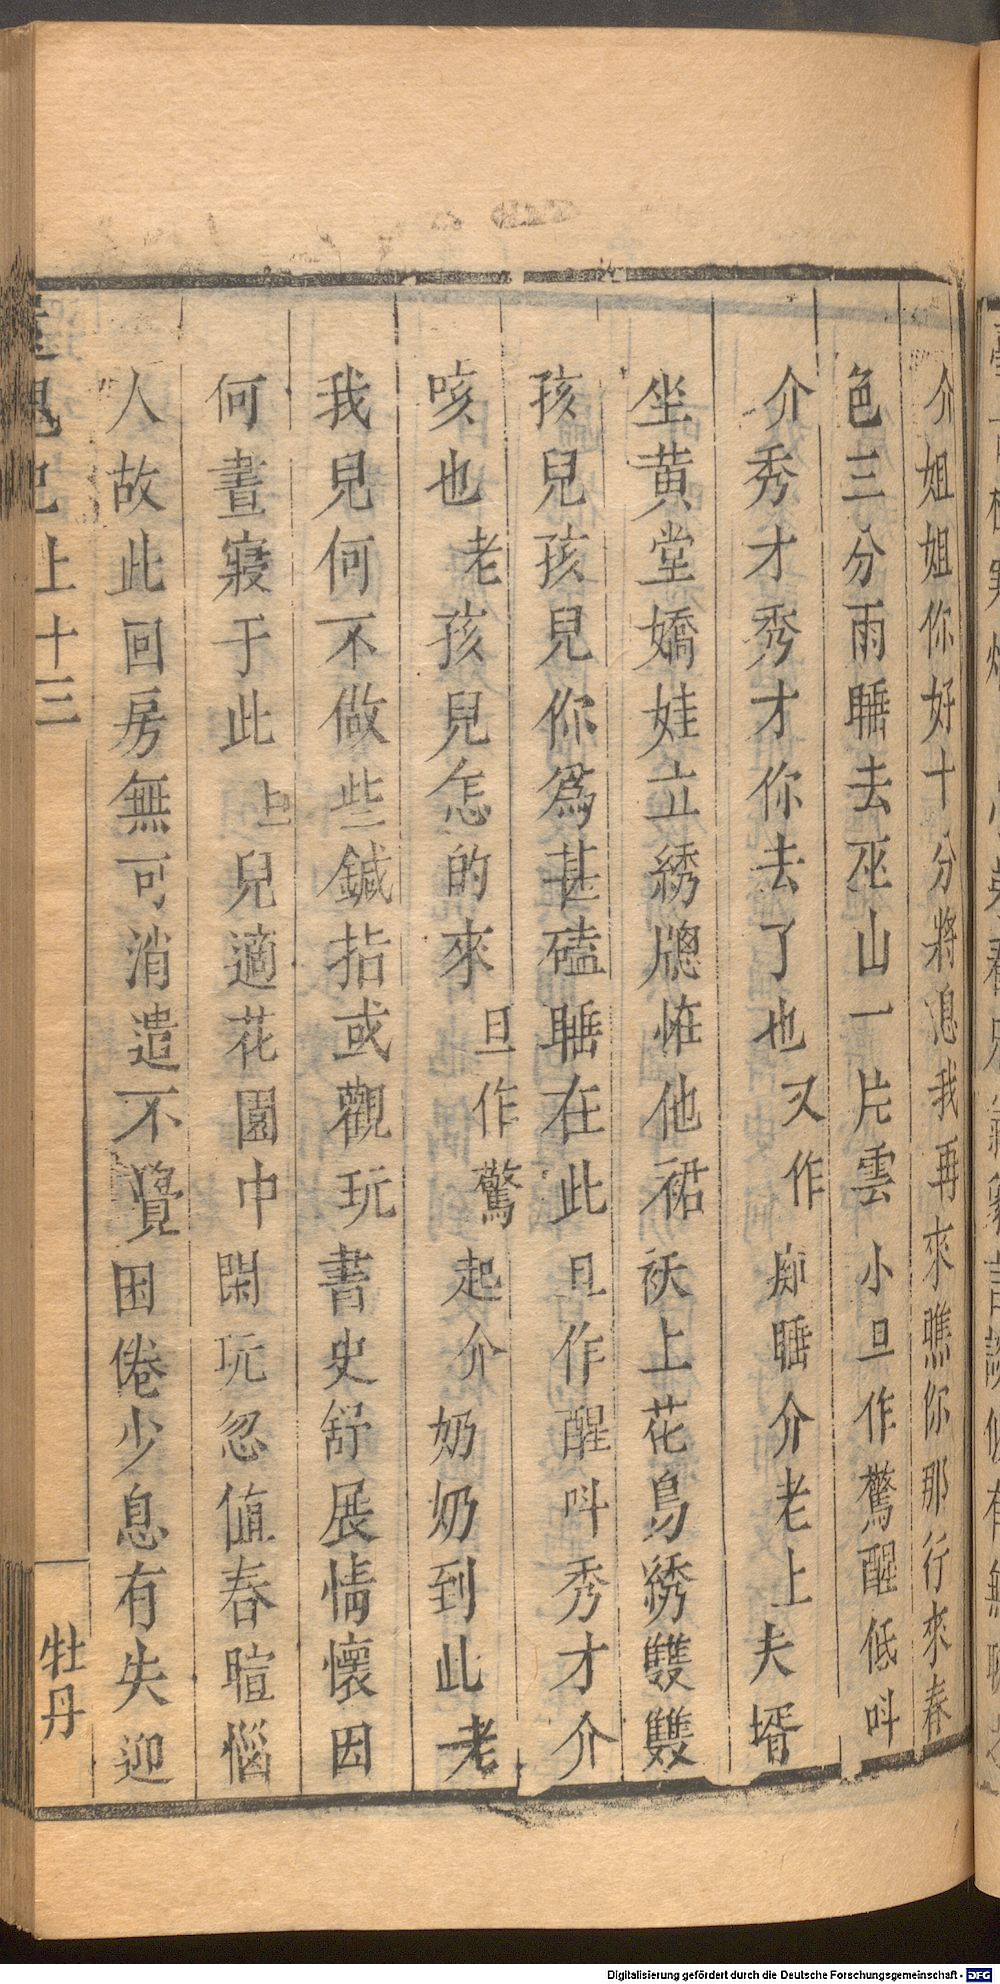 介姐姐你好十分將息我再來瞧你那行來春
色三分雨睡去巫山一片雲小旦作驚醒低叫
介秀才秀才你去了也又作痴睡介老上夫壻
坐黄堂嬌娃立綉牎惟他裙衩上花鳥綉雙雙
孩兒孩兒你爲甚磕睡在此旦作醒叫秀才介
咳也老孩兒怎的來旦作驚起介奶奶到此老
我兒何不做些鍼指或觀玩書史舒展情懷因
何晝寢于此旦兒適花園中閑玩忽値春暄惱
人故此回房無可消遣不覺困倦少息有失迎
還魂記上十三
牡丹
Digitalisierung gefördert durch die Deutsche Forschungsgemeinschaft - DFG